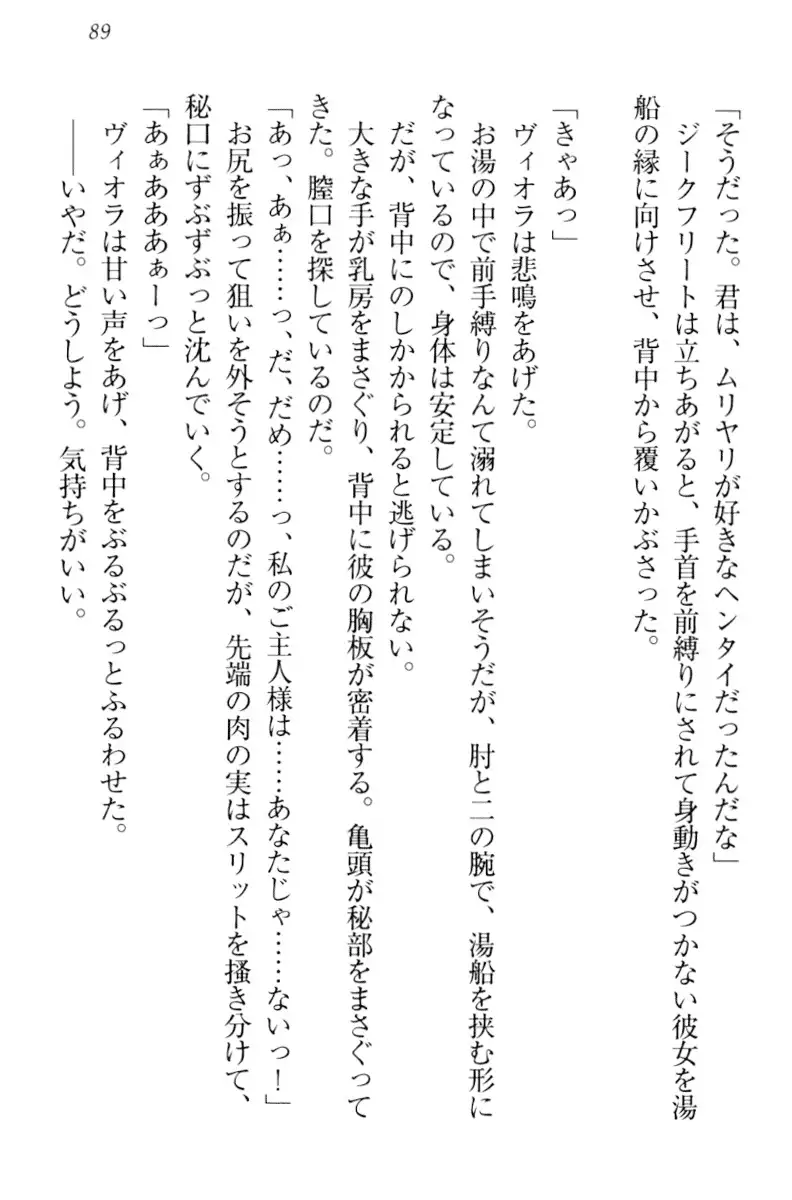 89
「そうだった。君は、ムリヤリが好きなヘンタイだったんだな」
ジークフリートは立ちあがると、手首を前縛りにされて身動きがつかない彼女を湯
船の縁に向けさせ、背中から覆いかぶさった。
「きゃあっ」
ヴィオラは悲鳴をあげた。
お湯の中で前手縛りなんて溺れてしまいそうだが、肘と二の腕で、湯船を挟む形に
なっているので、身体は安定している。
だが、背中にのしかかられると逃げられない。
大きな手が乳房をまさぐり、背中に彼の胸板が密着する。亀頭が秘部をまさぐって
きた。膣口を探しているのだ。
「あっ、あぁ……っ、だ、だめ……っ、私のご主人様は……あなたじゃ……ないっ！」
お尻を振って狙いを外そうとするのだが、先端の肉の実はスリットを掻き分けて、
秘口にずぶずぶっと沈んでいく。
「あぁあああぁーっ」
ヴィオラは甘い声をあげ、背中をぶるぶるっとふるわせた。
――いやだ。どうしよう。気持ちがいい。